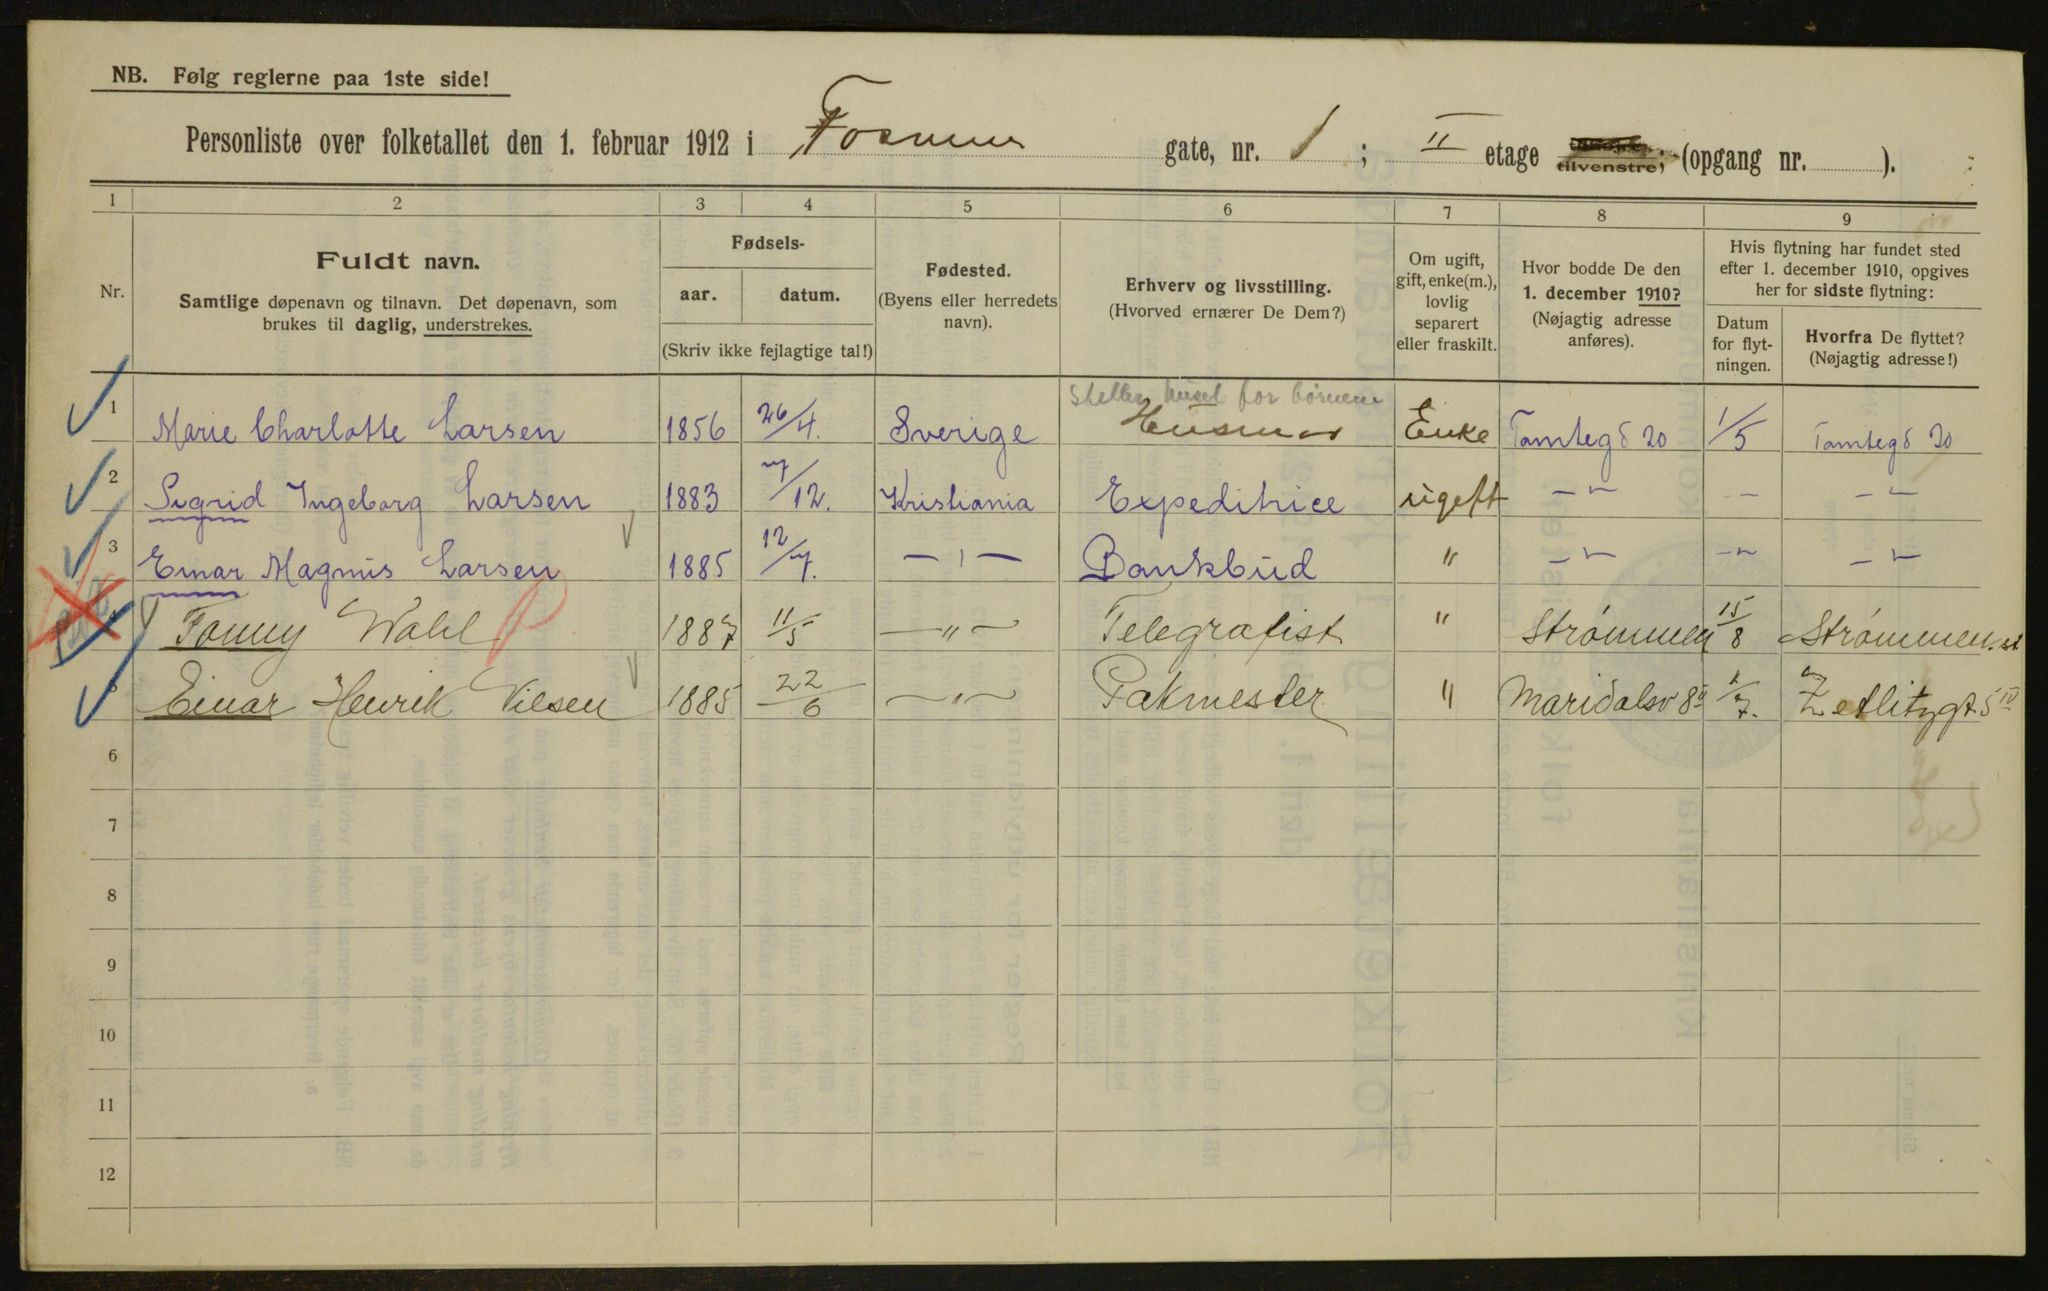 NB. Følg reglerne paa 1ste side!
Personliste over folketallet den 1. februar 1912 i gate, nr. 1 ; II etage tilvenstre; (opgang nr. ).
1 2 3 4 5 6 7 8 9
Nr.
Fuldt navn.
Samtlige døpenavn og tilnavn. Det døpenavn, som
brukes til daglig, understrekes.
Fødsels-
aar. datum.
(Skriv ikke fejlagtige tal!)
Fødested.
(Byens eller herredets
navn).
Erhverv og livsstilling.
(Hvorved ernærer De Dem?)
Om ugift,
gift, enke(m.),
lovlig
separert
eller fraskilt.
Hvor bodde De den
1. december 1910?
(Nøjagtig adresse
anføres).
Hvis flytning har fundet sted
efter 1. december 1910, opgives
her for sidste flytning:
Datum
for flyt-
ningen.
Hvorfra De flyttet?
(Nøjagtig adresse!)
steller huset for børnene
1 Marie Charlotte Larsen 1856 26/4. Sverige Husmor Enke Tomtegd 20 1/5 Tomtegd 20
2 Sigrid Ingeborg Larsen 1883 7/12. Kristiania Expeditrice ugift -"- -"- -"-
3 Einar Magnus Larsen 1885 12/7. -"- Bankbud " -"- -"- -"-
4 Fanny Wahl 1887 11/5 -"- Telegrafist " Strømmen 15/8 Strømmen st
5 Einar Henrik Nilsen 1885 22/6 -"- Pakmester " Maridalsv 8 1/7. Zetlitzgt 5 IV
6
7
8
9
10
11
12